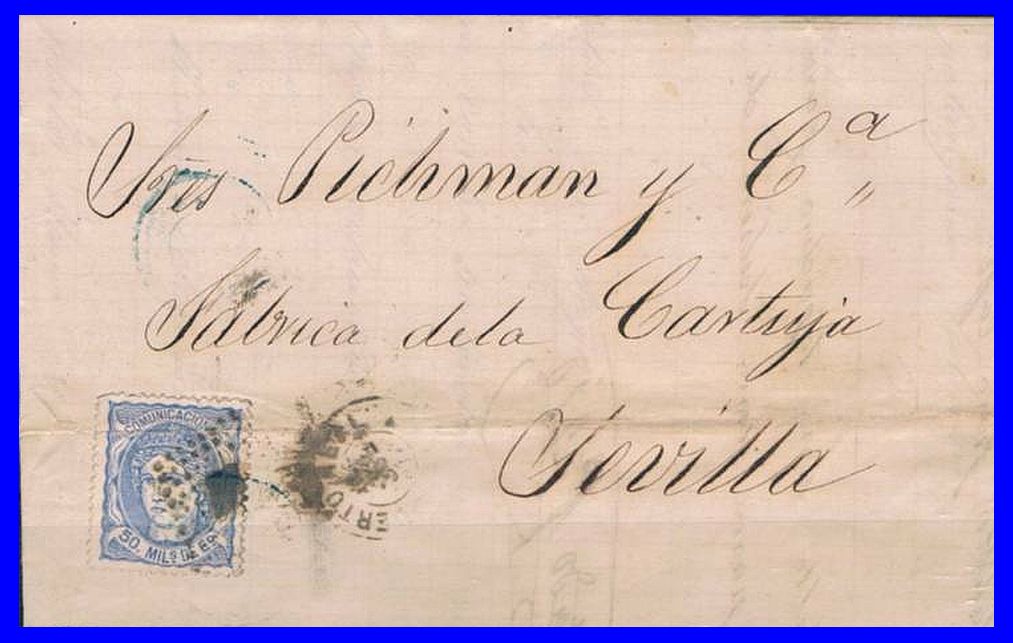 Sres Pichman y Cª
Fabrica de la Cartuja
Sevilla
COMUNICACIONES
50. MILS. DE E.